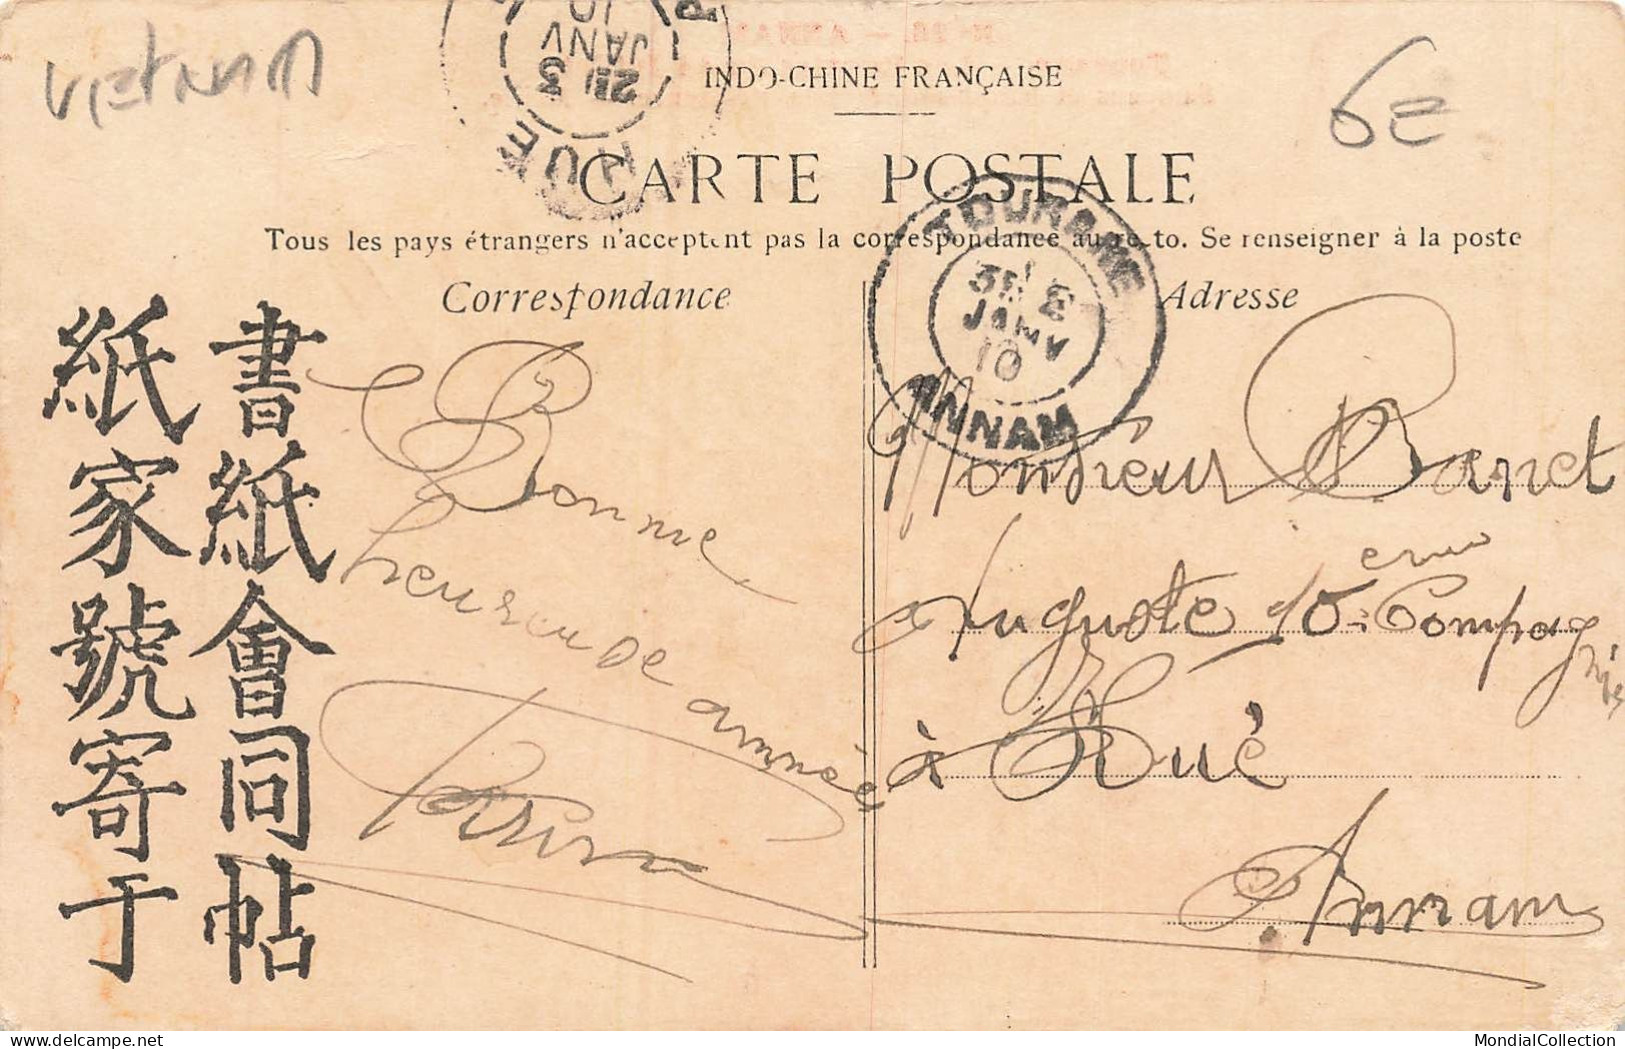 VIETNAM
6E
INDO-CHINE FRANÇAISE
CARTE POSTALE
Tous les pays étrangers n'acceptent pas la correspondance au recto. Se renseigner à la poste
Correspondance
Adresse
書紙會同帖
紙家號寄于
Bonne
heureuse
année
HUE
2E
3
JANV
10
TOURANE
3E 3
JANV
10
ANNAM
Monsieur Banet
Auguste 10eme Compagnie
à Hué
Annam
MondialCollection